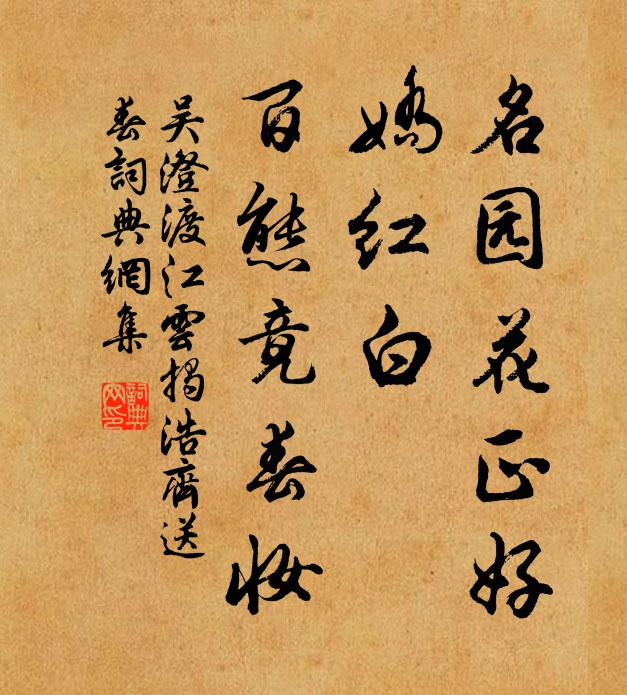 名园花正好
娇红白
百態竞春妆
吴澄渡江雲揭浩齋送
春詞典網集
詞典
网印